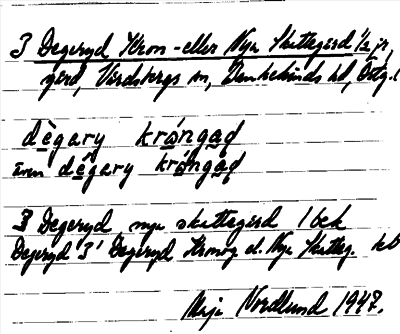 3 Degeryd Kron- eller Nya Skattegård 1/2 jr,
gård, Vårdsbergs sn, Bankekinds hd, Östg.l
dègary krǻngaḍ
även dégary krǻngaḍ
3 Degeryd, nya skattegård 1 bek
Degeryd 3¹ Degeryd Kronog el. Nya Skatteg. kb
Maja Nordlund 1947.